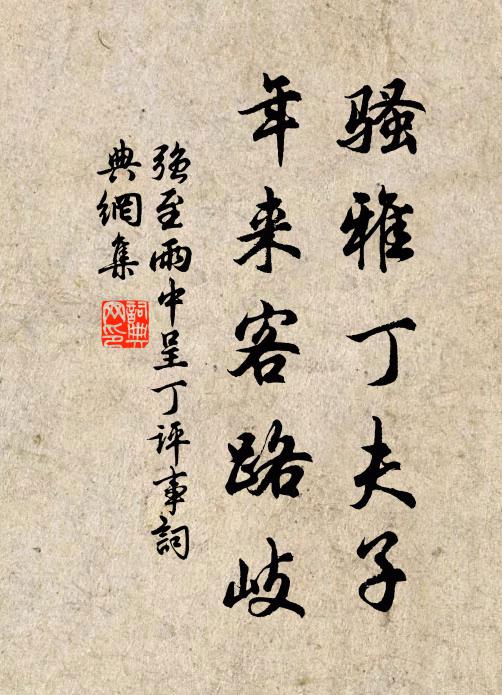 骚雅丁夫子
年来客路岐
强至雨中呈丁评事詞
典網集
詞典网印